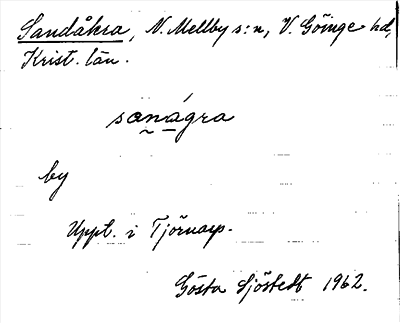 Sandåkra, N. Mellby s:n, V. Göinge hd,
Krist. län.
sanágra
by
Uppt. i Tjörnarp.
Gösta Sjöstedt 1962.